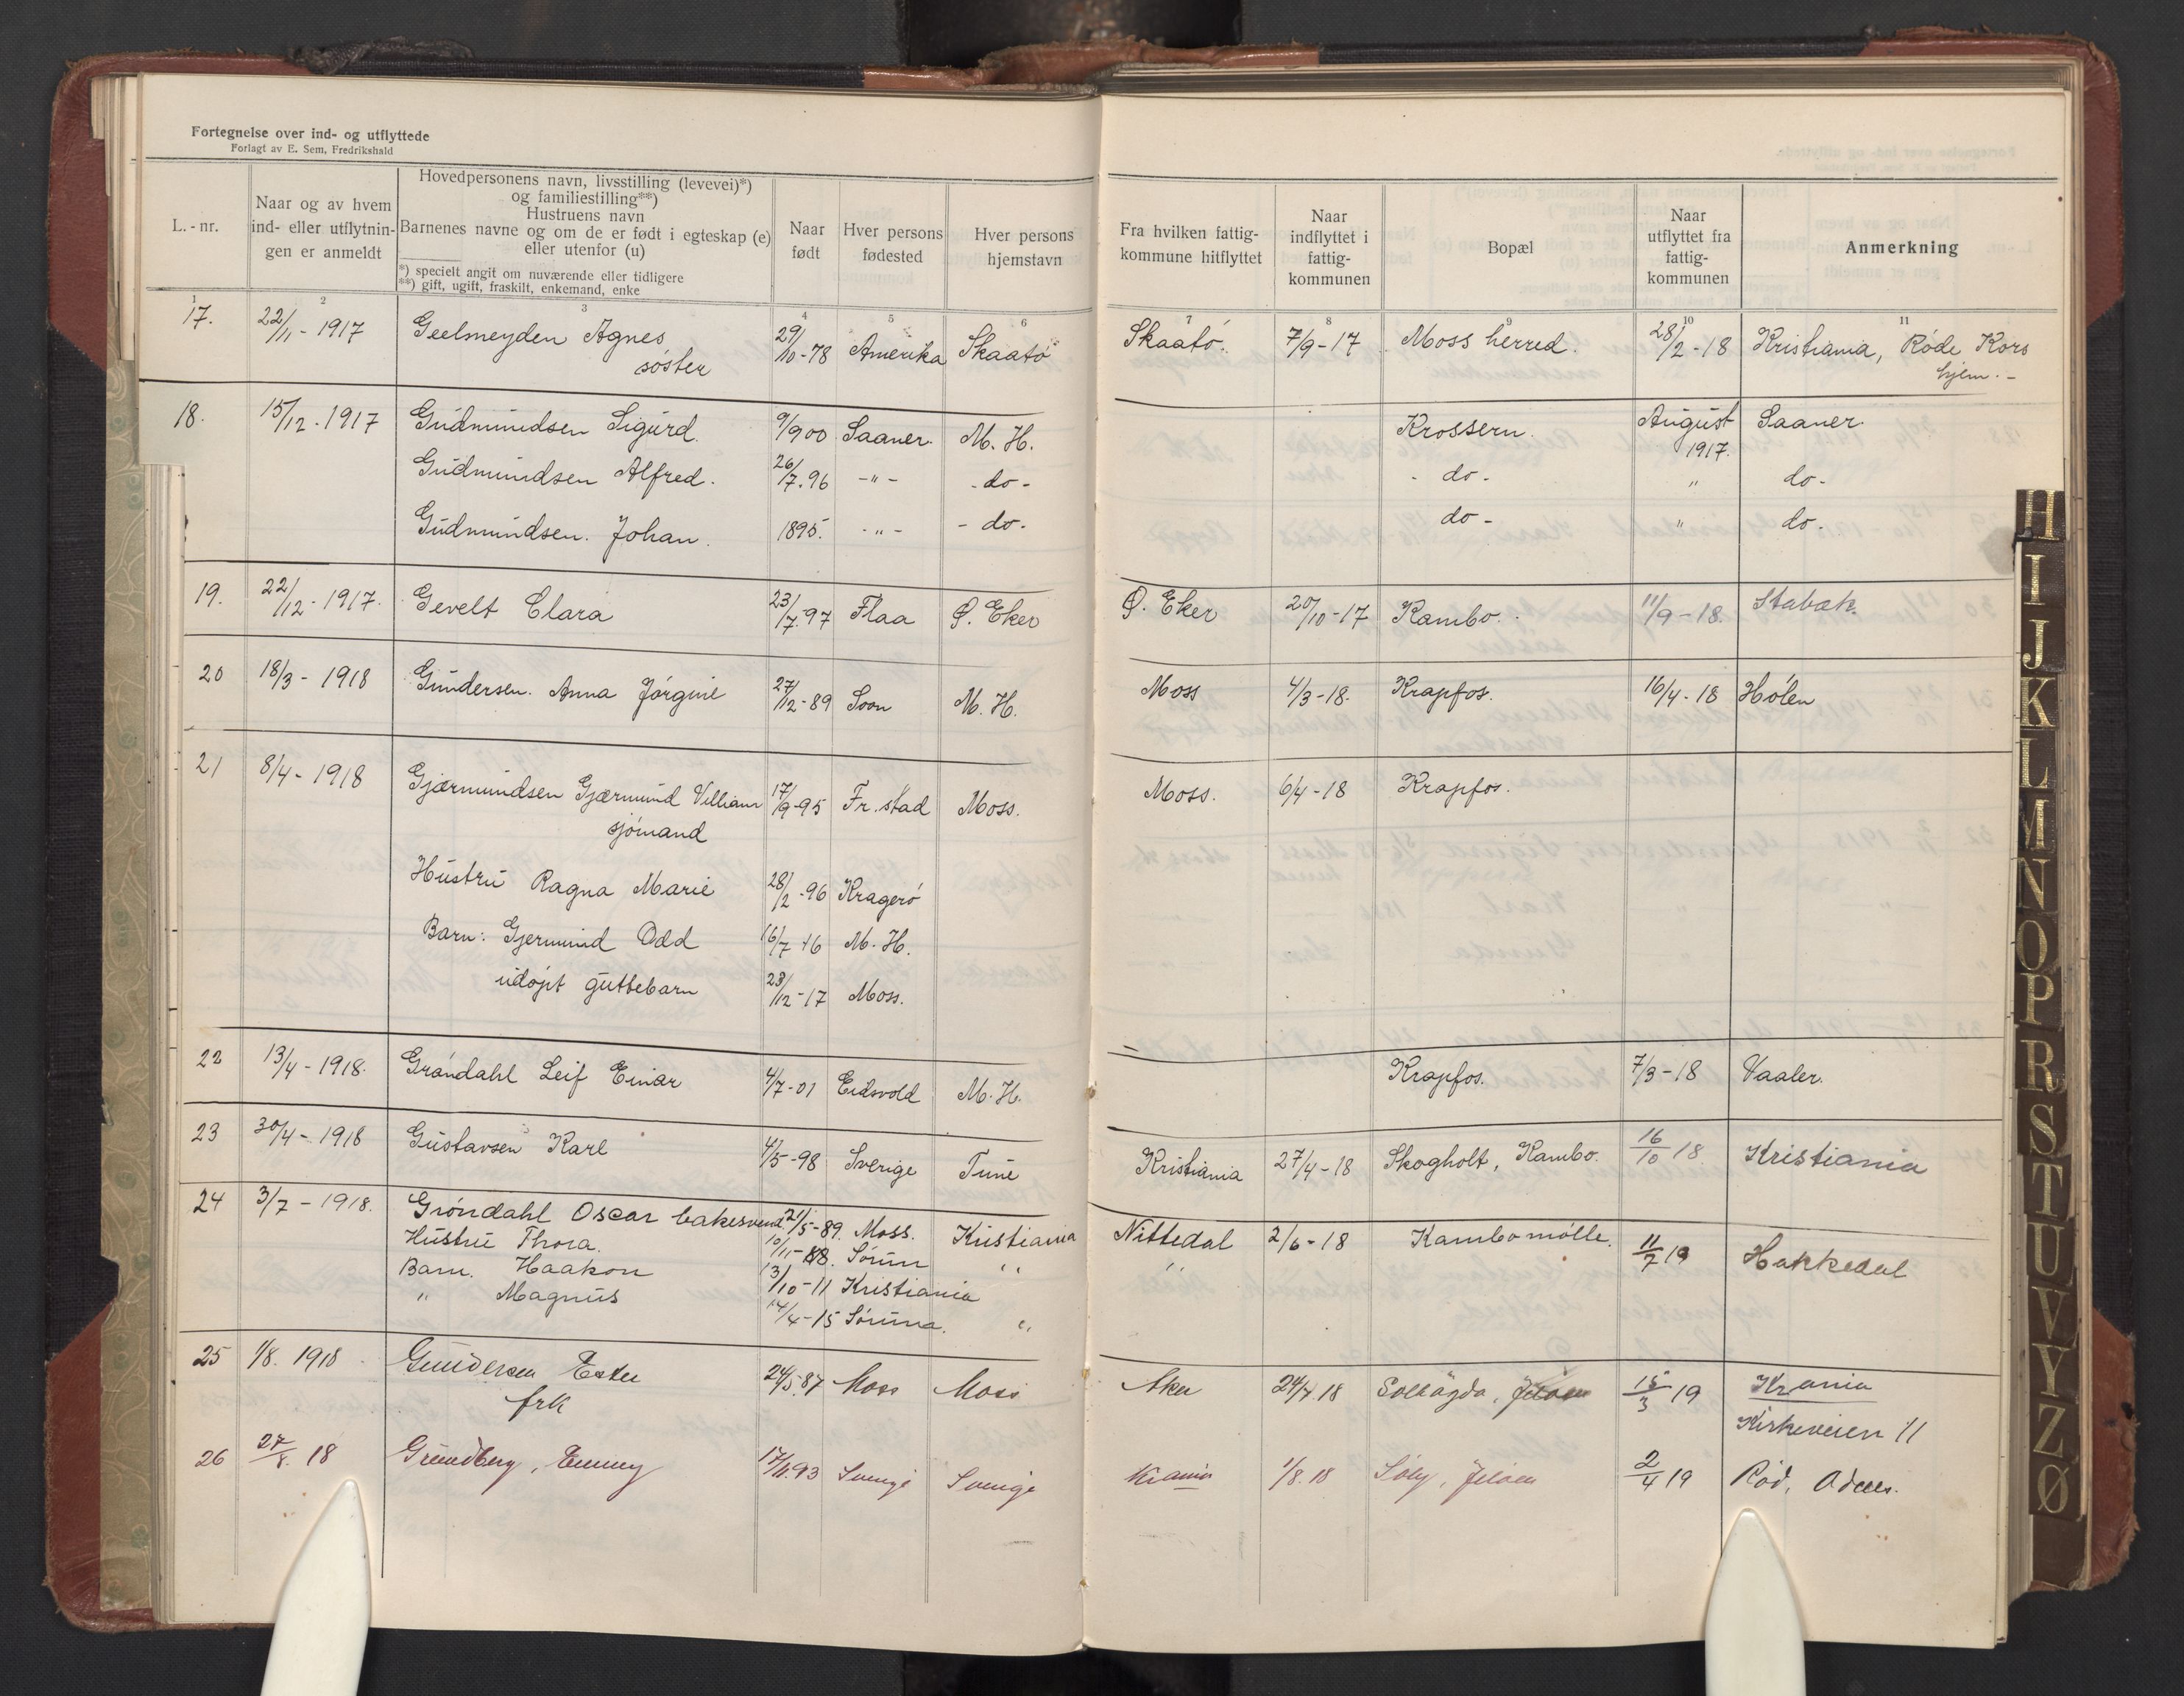 Fortegnelse over ind- og utflyttede
Forlagt av E. Sem, Fredrikshald
L.-nr.
Naar og av hvem
ind- eller utflytnin-
gen er anmeldt
Hovedpersonens navn, livsstilling (levevei)*)
og familiestilling**)
Hustruens navn
Barnenes navne og om de er født i egteskap (e)
eller utenfor (u)
*) specielt angit om nuværende eller tidligere
**) gift, ugift, fraskilt, enkemand, enke
Naar
født
Hver persons
fødested
Hver persons
hjemstavn
Fra hvilken fattig-
kommune hitflyttet
Naar
indflyttet i
fattig-
kommunen
Bopæl
Naar
utflyttet fra
fattig-
kommunen
Anmerkning
1 2 3 4 5 6 7 8 9 10 11
17. 22/11 - 1917 Geelmeyden Agnes 29/10-78 Amerika Skaatö Skaatö. 7/9-17 Moss herred. 28/2-18 Kristiania, Röde Kors
söster hjem.-
18. 15/12 - 1917 Gudmundsen Sigurd. 9/9 00 Saaner. M. H. Krossern. August 1917. Saaner.
Gudmundsen Alfred. 26/7.96 -"- -do- -do- " do-
Gudmundsen. Johan. 1895. -"- -do- do- " do-
19. 22/12 - 1917. Gevelt Clara 23/7.97 Flaa Ø. Eker Ø. Eker 20/10-17 Kambo. 11/9-18. Stabæk.
20 18/3 - 1918 Gundersen. Anna Jörgine 27/12-89 Soon M. H. Moss 4/3-18. Krapfos. 16/4-18 Hölen
21 8/4 - 1918 Gjærmundsen Gjærmund Villiam 17/9-95 Fr.stad Moss. Moss. 6/4-18 Krapfos.
sjömand
Hustru Ragna Marie 28/2-96 Kragerö
Barn: Gjermund Odd 16/7 16 M. H.
udöpt guttebarn 23/12-17 Moss.
22 13/4 - 1918. Gröndahl Leif Einar 4/7-01 Eidsvold M. H. Krapfos. 7/3-18 Vaaler.
23 30/4 - 1918 Gustavsen Karl 4/5-98 Sverige Tune Kristiania 27/4-18 Skogholt, Kambo. 16/10 18. Kristiania
24 3/7 - 1918. Gröndahl Oscar bakesvend 21/5-89. Moss. Kristiania Nittedal 2/6-18 Kambo mölle. 11/7 19 Hakkedal
Hustru Thora. 10/11-88. Sörum " "
Barn. Haakon 13/10-11 Kristiania
" Magnus 14/4-15 Söruma. "
25 1/8. 1918 Gundersen Ester 24/5.87 Moss Moss Aker 24/7.18 Solhögda, Jelöen 15/3 19 Krania
frk Kirkeveien 11
26 27/8. 18 Grundberg, Emmy 17/11.93 Sverige Sverige Krania 1/8.18 Söly, Jelöen 2/4 19 Röd,
H
I
J
K
L
M
N
O
P
R
S
T
U
V
Y
Z
Ø